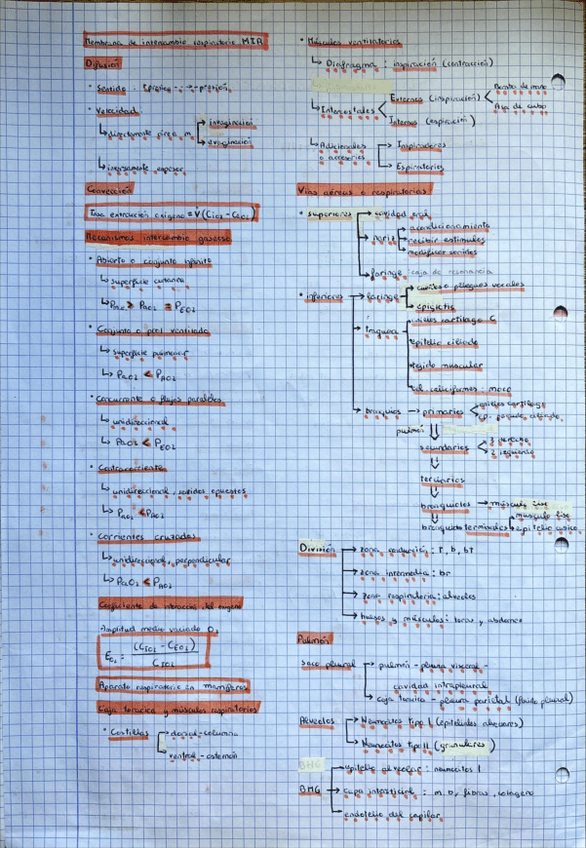 Membrana de intercambio respiratorio MIR
Difusión
• Sentido:
• Velocidad:
↳ directamente
→ invaginación
→ evaginación
↳ inversamente espesor
Convección
Tasa extracción oxígeno = V̇(CIO2 - CEO2)
Mecanismos intercambio gaseoso
• Abierto o conjunto infinito
↳ superficie cutánea
• Conjunto o pool ventilado
↳ superficie pulmonar
↳ PaO2 < PAO2
• Concurrente o flujos paralelos
↳ unidireccional
↳ PaO2 < PEO2
• Contracorriente
↳ unidireccional, sentidos opuestos
• Corrientes cruzadas
↳ unidireccional, perpendicular
Coeficiente de extracción del oxígeno
EO2 = (CIO2 - CEO2) / CIO2
Aparato respiratorio en mamíferos
Caja torácica y músculos respiratorios
• Costillas → dorsal-columna
→ ventral-esternón
• Músculos ventilatorios
↳ Diafragma: inspiración (contracción)
↳ Intercostales
Externos (inspiración)
Asa de cubo
Internos (espiración)
↳ Adicionales o accesorios
→ Inspiradores
→ Espiratorios
Vías aéreas o respiratorias
• superiores → cavidad oral
→ nariz
→ acondicionamiento
→ recibir estímulos
→ modificar sonidos
→ faringe: caja de resonancia
• inferiores → laringe → cuerdas o pliegues vocales
→ epiglotis
→ tráquea
→ anillos cartílago C
→ epitelio ciliado
→ tejido muscular
→ cel. caliciformes: moco
→ bronquios → primarios
pulmón
secundarios
3 derecho
2 izquierdo
terciarios
bronquiolos → músculo liso
bronquiolo terminales → músculo liso
→ epitelio cúbico
División → zona conducción: T, b, bt
→ zona intermedia: br
→ zona respiratoria: alveolos
→ huesos y músculos: tórax y abdomen
Pulmón
Saco pleural → pulmón - pleura visceral -
cavidad intrapleural
→ caja torácica - pleura parietal (fluido pleural)
Alveolos → Neumocitos tipo I (epiteliales alveolares)
→ Neumocitos tipo II (granulares)
BHG
BHG → epitelio alveolar: neumocitos I
→ capa intersticial: m. b, fibras, colágeno
→ endotelio del capilar